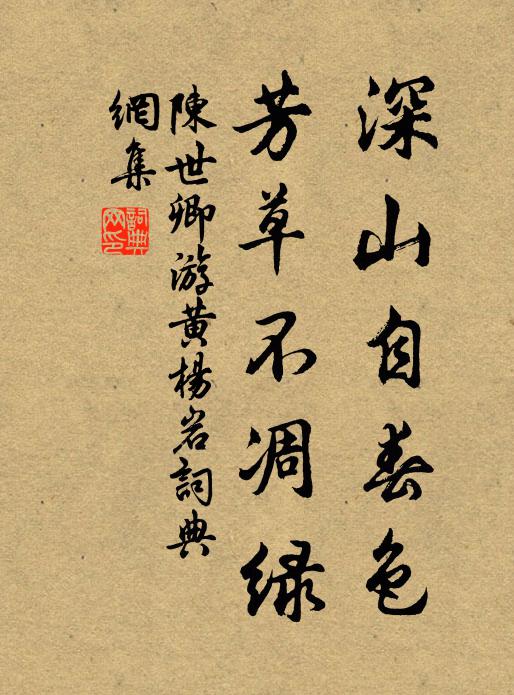 深山自春色
芳草不凋绿
陳世卿游黄楊岩詞典
網集
詞典
网印